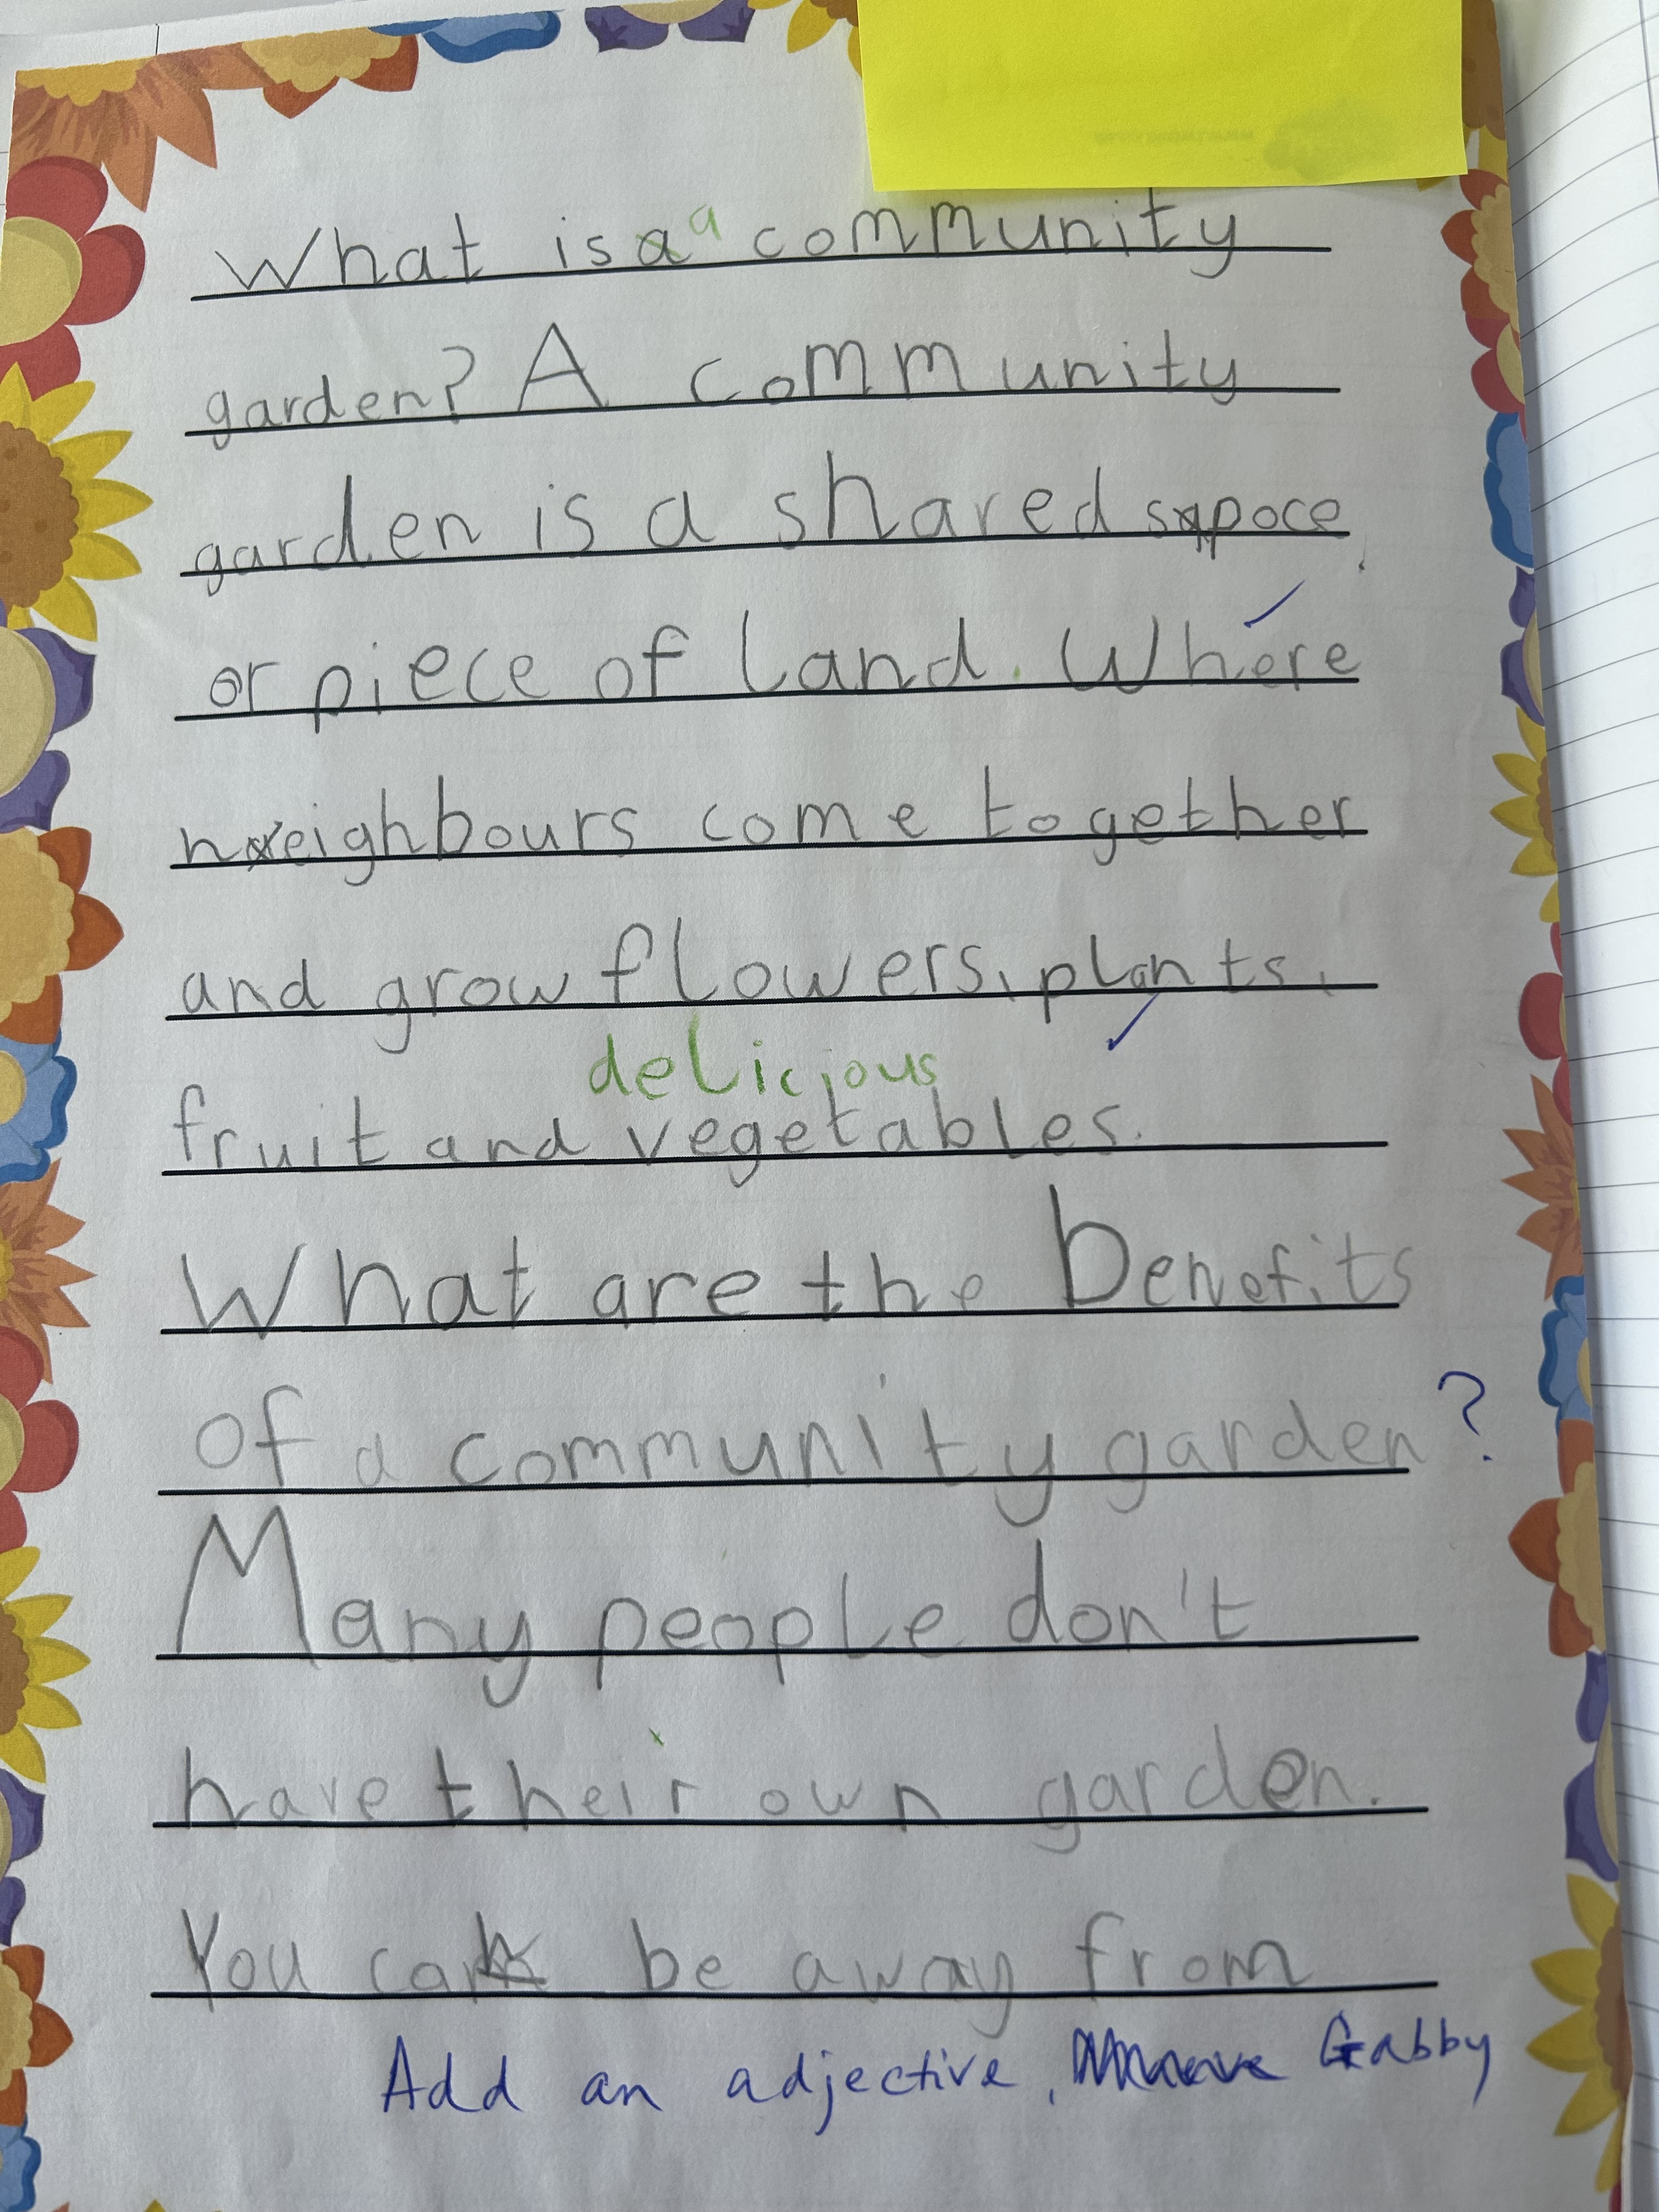 What is a a community
garden? A community
garden is a shared spoce
or piece of land. Where
neighbours come together
and grow flowers, plants,
delicious
fruit and vegetables.
What are the benefits
of a community garden?
Many people don't
have their own garden.
You can be away from
Add an adjective, Gabby